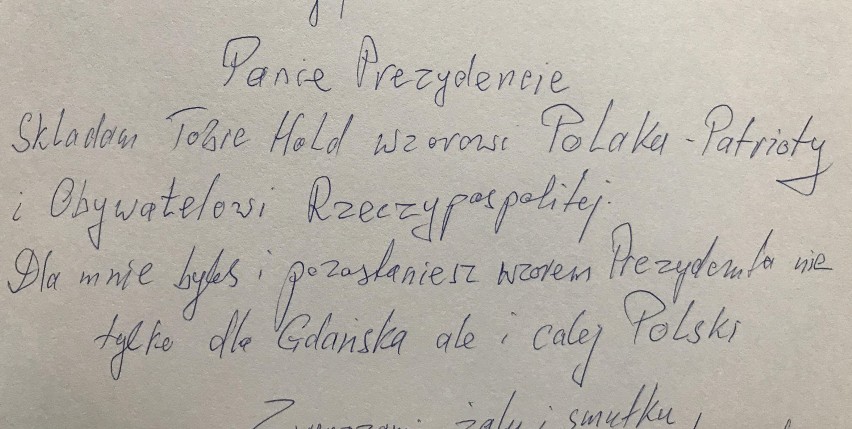 Panie Prezydencie
Składam Tobie Hołd wzorowi Polaka - Patrioty
i Obywatelowi Rzeczypospolitej.
Dla mnie byłeś i pozostaniesz wzorem Prezydenta nie
tylko dla Gdańska ale i całej Polski
Z wyrazami żalu i smutku